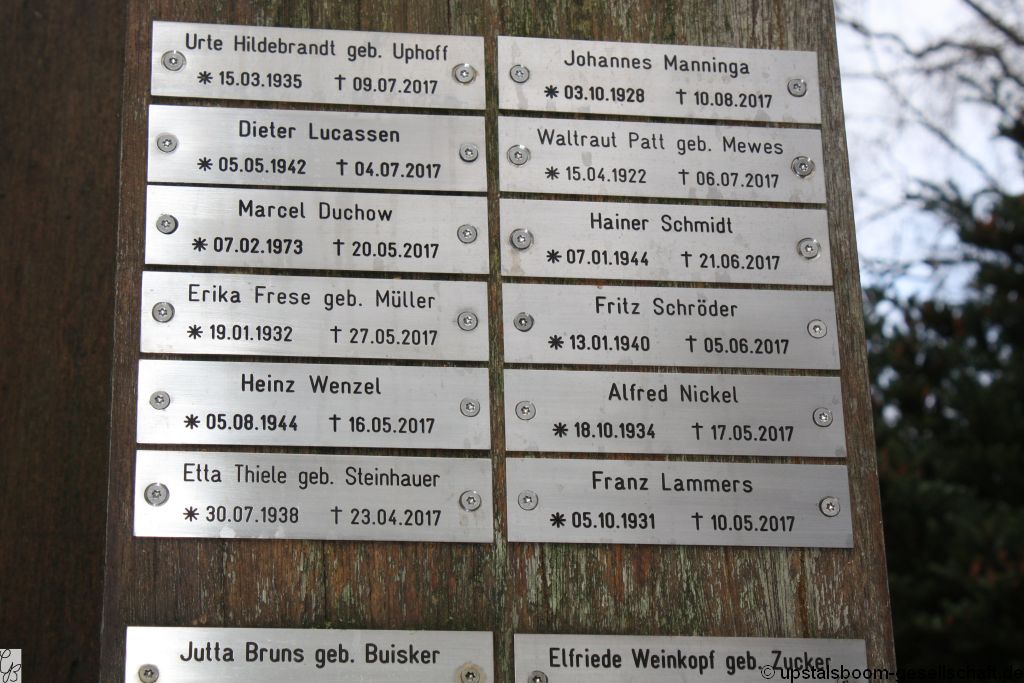 Urte Hildebrandt geb. Uphoff
✳ 15.03.1935 † 09.07.2017
Dieter Lucassen
✳ 05.05.1942 † 04.07.2017
Marcel Duchow
✳ 07.02.1973 † 20.05.2017
Erika Frese geb. Müller
✳ 19.01.1932 † 27.05.2017
Heinz Wenzel
✳ 05.08.1944 † 16.05.2017
Etta Thiele geb. Steinhauer
✳ 30.07.1938 † 23.04.2017
Jutta Bruns geb. Buisker
Johannes Manninga
✳ 03.10.1928 † 10.08.2017
Waltraut Patt geb. Mewes
✳ 15.04.1922 † 06.07.2017
Hainer Schmidt
✳ 07.01.1944 † 21.06.2017
Fritz Schröder
✳ 13.01.1940 † 05.06.2017
Alfred Nickel
✳ 18.10.1934 † 17.05.2017
Franz Lammers
✳ 05.10.1931 † 10.05.2017
Elfriede Weinkopf geb. Zucker
© upstalsboom-gesellschaft.de